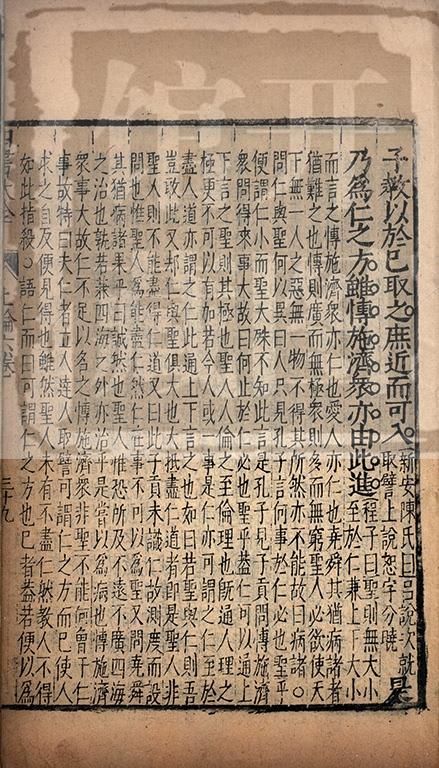 子教以於己取之。庶近而可入。新安陳氏曰呂說次就
取譬上說恕字分曉是
乃爲仁之方。雖博施濟衆。亦由此進。程子曰聖則無大小
至於仁兼上下大小
而言之博施濟衆亦仁也愛人亦仁也堯舜其猶病諸者
猶難之也博則廣而無極衆則多而無窮聖人必欲使天
下無一人之惡無一物不得其所然亦不能故曰病諸○
問仁與聖何以異曰人只見孔子言何事於仁必也聖乎
便謂仁小而聖大殊不知此言是孔子見子貢問博施濟
衆問得來事大故曰何止於仁必也聖乎蓋仁可以通上
下言之聖則其極也聖人人倫之至倫理也旣通人理之
極更不可以有加若今人或一事是仁亦可謂之仁至於
盡人道亦謂之仁此通上下言之也如曰若聖與仁則吾
豈敢此又却仁與聖俱大也大抵盡仁道者卽是聖人非
聖人則不能盡得仁道又曰此子貢未識仁故測度而設
問也惟聖人爲能盡仁然仁在事不可以爲聖又問堯舜
其猶病諸果乎曰誠然也聖人惟恐所及不遠不廣四海
之治也孰若兼四海之外亦治乎是嘗以爲病也博施濟
衆事大故仁不足以名之博施濟衆非聖不能何曾干仁
事故特曰夫仁者立人達人取譬可謂仁之方而已使人
求之自反便見得也雖然聖人未有不盡仁然教人不得
如此指殺○語仁而曰可謂仁之方也已者蓋若便以爲
四書大全 上論六卷 三十九